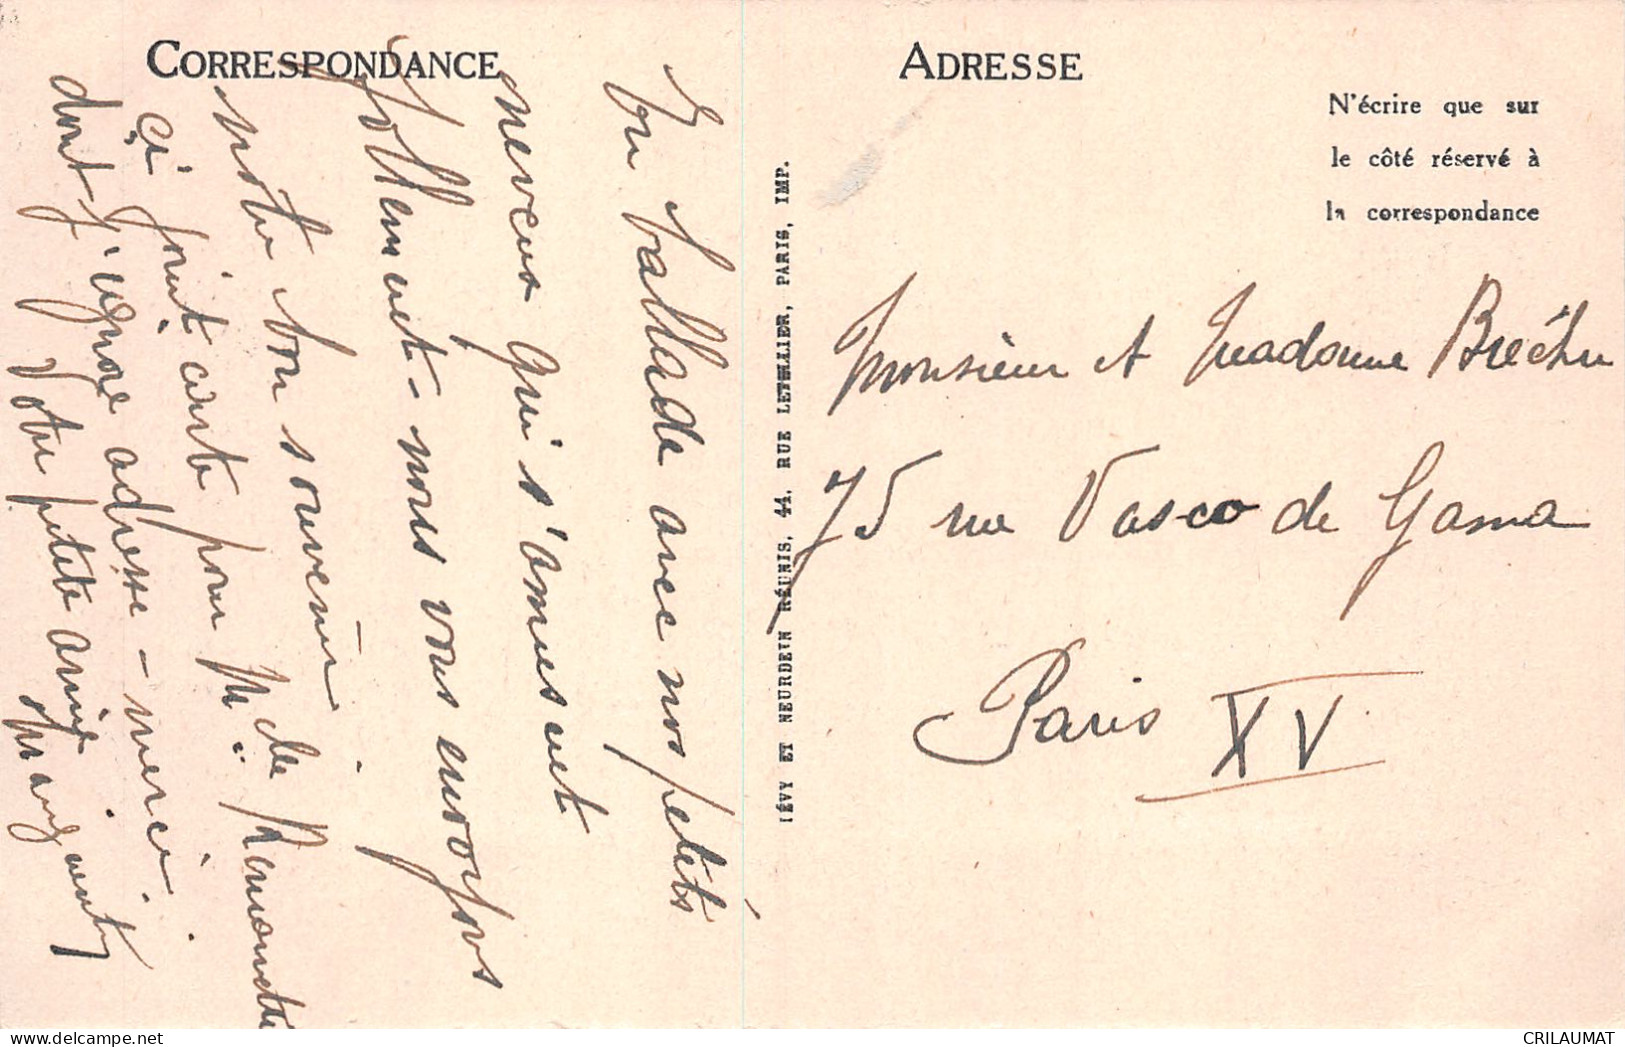 CORRESPONDANCE
En ballade avec nos petits
neveux qui s'amusent
follement - nous vous envoyons
notre bon souvenir.
ci joint carte pour Melle Rémondet
dont j'ignore adresse - merci.
Votre petite amie
Marguerite
LÉVY ET NEURDEIN RÉUNIS, 44, RUE LETELLIER, PARIS, IMP.
ADRESSE
N'écrire que sur
le côté réservé à
la correspondance
Monsieur et Madame Bréchu
75 rue Vasco de Gama
Paris XV
CRILAUMAT